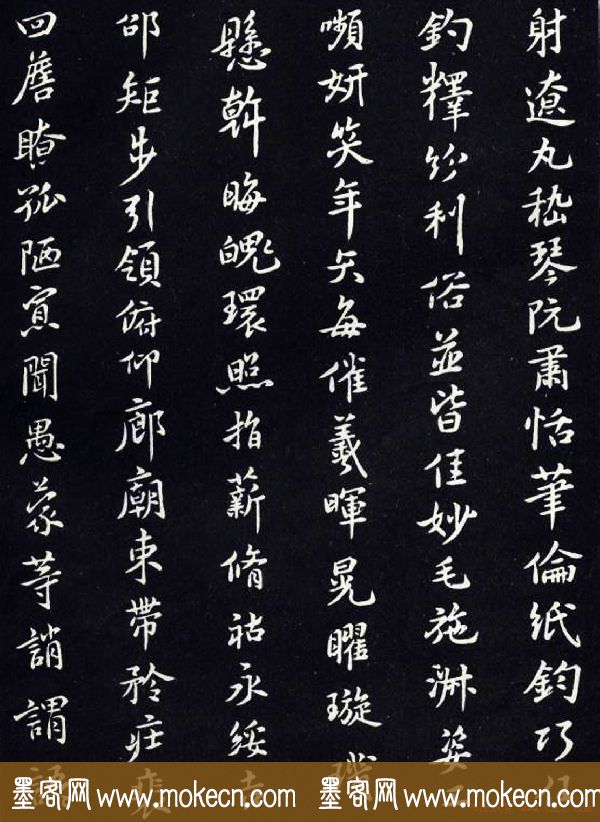 射遼丸嵇琴阮肅恬筆倫紙鈞巧任
釣釋紛利俗並皆佳妙毛施淑姿工
嚬妍笑年矢每催羲暉晃曜璇璣
懸斡晦魄環照指薪脩祜永綏吉
邵矩步引領俯仰廊廟束帶矜莊裵
回詹瞭孤陋寡聞愚蒙等誚謂語
墨客网 www.mokecn.com 墨客网 www.mokecn.com